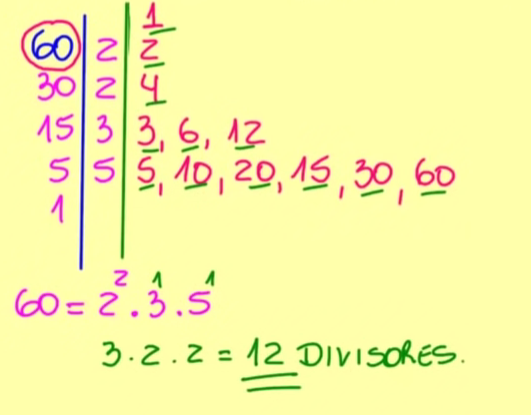 1
60 2 2
30 2 4
15 3 3, 6, 12
5 5 5, 10, 20, 15, 30, 60
1
60 = 2² . 3¹ . 5¹
3 . 2 . 2 = 12 DIVISORES.